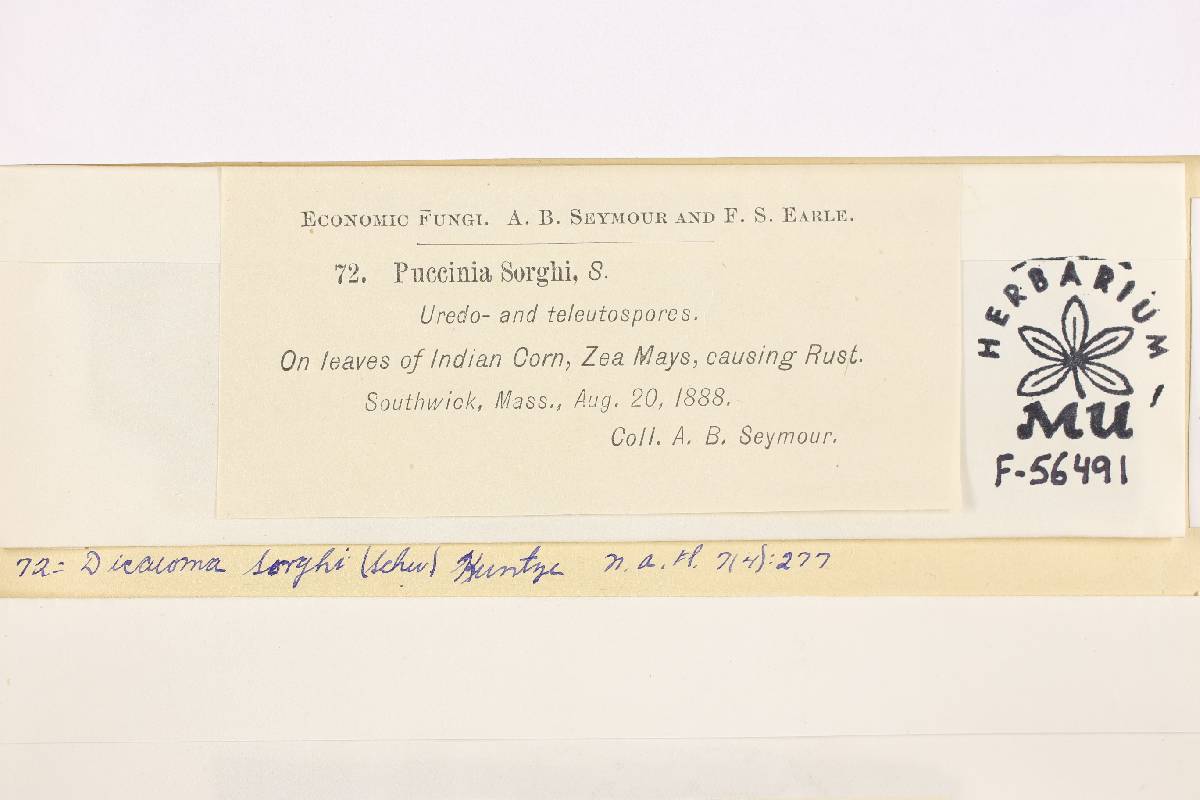 ECONOMIC FUNGI. A. B. SEYMOUR AND F. S. EARLE.
72. Puccinia Sorghi, S.
Uredo- and teleutospores.
On leaves of Indian Corn, Zea Mays, causing Rust.
Southwick, Mass., Aug. 20, 1888.
Coll. A. B. Seymour.
HERBARIUM,
MU
F-56491
72= Dicaeoma Sorghi (Schw) Kuntze N. A. Fl. 7(4):277